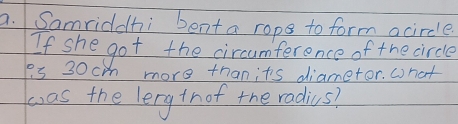 a. Samriddhi bent a rope to form a circle.
If she got the circumference of the circle
is 30 cm more than it's diameter. what
was the lergthof the radius?